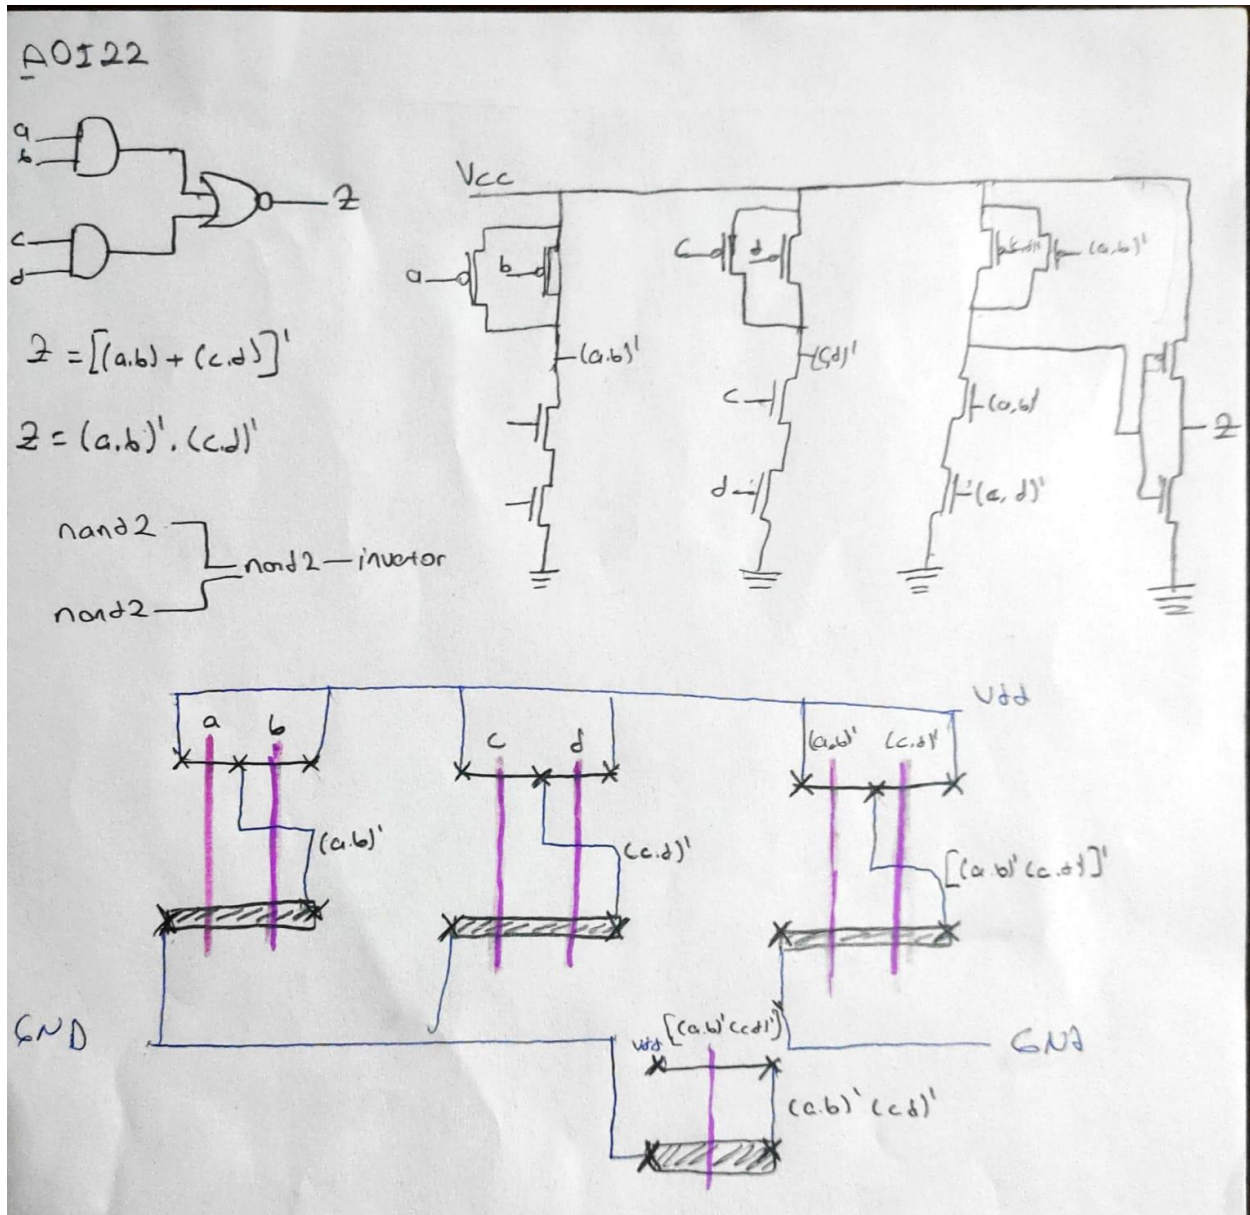 AOI22
a
b
c
d
Z
Z = [(a.b) + (c.d)]'
Z = (a.b)' . (c.d)'
nand2
nand2 — invetor
nand2
Vcc
a
b
(a.b)'
c
d
(c,d)'
c
d
(a,b)'
(a,b)'
(a, d)'
Z
Vdd
a
b
(a.b)'
c
d
(c.d)'
(a.b)'
(c.d)'
[(a.b)' (c.d)']'
GND
Vdd
[(a.b)' (cd)']'
GNd
(a.b)' (cd)'